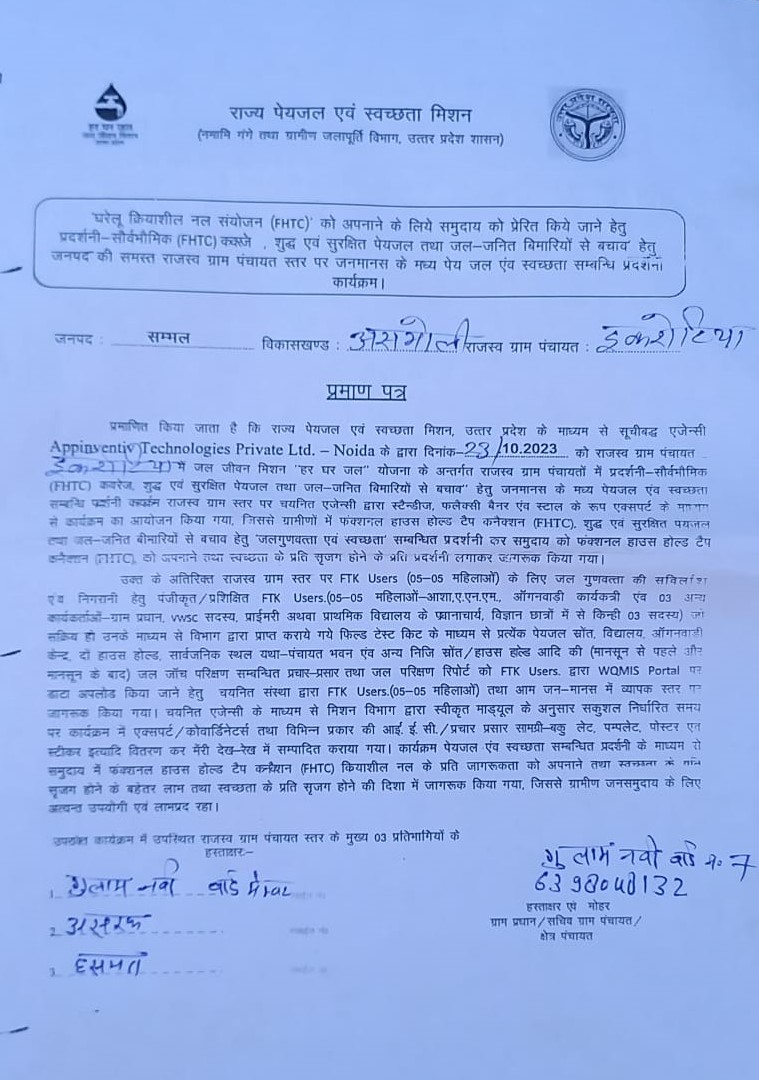 हर घर जल
राज्य पेयजल एवं स्वच्छता मिशन
(नमामि गंगे तथा ग्रामीण जलापूर्ति विभाग, उत्तर प्रदेश शासन)
'घरेलू क्रियाशील नल संयोजन (FHTC)' को अपनाने के लिये समुदाय को प्रेरित किये जाने हेतु
प्रदर्शनी–सौर्वभौमिक (FHTC) कक्जे , शुद्ध एवं सुरक्षित पेयजल तथा जल–जनित बिमारियों से बचाव' हेतु
जनपद की समस्त राजस्व ग्राम पंचायत स्तर पर जनमानस के मध्य पेय जल एंव स्वच्छता सम्बन्धि प्रदर्शनी
कार्यक्रम।
जनपद : सम्भल विकासखण्ड : असमोली राजस्व ग्राम पंचायत : इकरोटिया
प्रमाण पत्र
प्रमाणित किया जाता है कि राज्य पेयजल एवं स्वच्छता मिशन, उत्तर प्रदेश के माध्यम से सूचीबद्ध एजेन्सी
Appinventiv Technologies Private Ltd. – Noida के द्वारा दिनांक–23/10.2023 को राजस्व ग्राम पंचायत
इकरोटिया में जल जीवन मिशन "हर घर जल" योजना के अन्तर्गत राजस्व ग्राम पंचायतों में प्रदर्शनी–सौर्वभौमिक
(FHTC) कवरेज, शुद्ध एवं सुरक्षित पेयजल तथा जल–जनित बिमारियों से बचाव" हेतु जनमानस के मध्य पेयजल एंव स्वच्छता
सम्बन्धि प्रदर्शनी कार्यक्रम राजस्व ग्राम स्तर पर चयनित एजेन्सी द्वारा स्टैन्डीज, फलैक्सी बैनर एंव स्टाल के रूप एक्सपर्ट के माध्यम
से कार्यक्रम का आयोजन किया गया, जिससे ग्रामीणों में फंक्शनल हाउस होल्ड टैप कनैक्शन (FHTC), शुद्ध एवं सुरक्षित पेयजल
तथा जल–जनित बीमारियों से बचाव हेतु 'जलगुणवत्ता एवं स्वच्छता' सम्बन्धित प्रदर्शनी कर समुदाय को फंक्शनल हाउस होल्ड टैप
कनैक्शन (FHTC), को अपनाने तथा स्वच्छता के प्रति सृजग होने के प्रति प्रदर्शनी लगाकर जागरूक किया गया।
उक्त के अतिरिक्त राजस्व ग्राम स्तर पर FTK Users (05–05 महिलाओं) के लिए जल गुणवत्ता की सर्विलांश
एंव निगरानी हेतु पंजीकृत/प्रशिक्षित FTK Users.(05–05 महिलाओं–आशा,ए.एन.एम., ऑगनवाड़ी कार्यकत्री एंव 03 अन्य
कार्यकर्ताओं–ग्राम प्रधान, VWSC सदस्य, प्राईमरी अथवा प्राथमिक विद्यालय के प्रधानाचार्य, विज्ञान छात्रों में से किन्ही 03 सदस्य) जो
सक्रिय हो उनके माध्यम से विभाग द्वारा प्राप्त कराये गये फिल्ड टेस्ट किट के माध्यम से प्रत्येक पेयजल स्रोंत, विद्यालय, ऑगनवाडी
केन्द्र, दो हाउस होल्ड, सार्वजनिक स्थल यथा–पंचायत भवन एंव अन्य निजि स्रोंत/हाउस होल्ड आदि की (मानसून से पहले और
मानसून के बाद) जल जाँच परिक्षण सम्बन्धित प्रचार–प्रसार तथा जल परिक्षण रिपोर्ट को FTK Users. द्वारा WQMIS Portal पर
डाटा अपलोड किया जाने हेतु चयनित संस्था द्वारा FTK Users.(05–05 महिलाओं) तथा आम जन–मानस में व्यापक स्तर पर
जागरूक किया गया। चयनित एजेन्सी के माध्यम से मिशन विभाग द्वारा स्वीकृत माड्यूल के अनुसार सकुशल निर्धारित समय
पर कार्यक्रम में एक्सपर्ट/कोवार्डिनेटर्स तथा विभिन्न प्रकार की आई. ई. सी./प्रचार प्रसार सामग्री–बकु लेट, पम्पलेट, पोस्टर एंव
स्टीकर इत्यादि वितरण कर मेरी देख–रेख में सम्पादित कराया गया। कार्यक्रम पेयजल एंव स्वच्छता सम्बन्धित प्रदर्शनी के माध्यम से
समुदाय में फंक्शनल हाउस होल्ड टैप कनैक्शन (FHTC) कियाशील नल के प्रति जागरूकता को अपनाने तथा स्वच्छता के प्रति
सृजग होने के बहेतर लाभ तथा स्वच्छता के प्रति सृजग होने की दिशा में जागरूक किया गया, जिससे ग्रामीण जनसमुदाय के लिए
अत्यन्त उपयोगी एवं लाभप्रद रहा।
उपरोक्त कार्यक्रम में उपस्थित राजस्व ग्राम पंचायत स्तर के मुख्य 03 प्रतिभागियों के
हस्ताक्षरः–
1. गुलाम नवी वार्ड मेम्बर
2. असरफ
3. हसमत
गुलाम नवी वार्ड न० 7
6398040132
हस्ताक्षर एंव मोहर
ग्राम प्रधान/सचिव ग्राम पंचायत/
क्षेत्र पंचायत